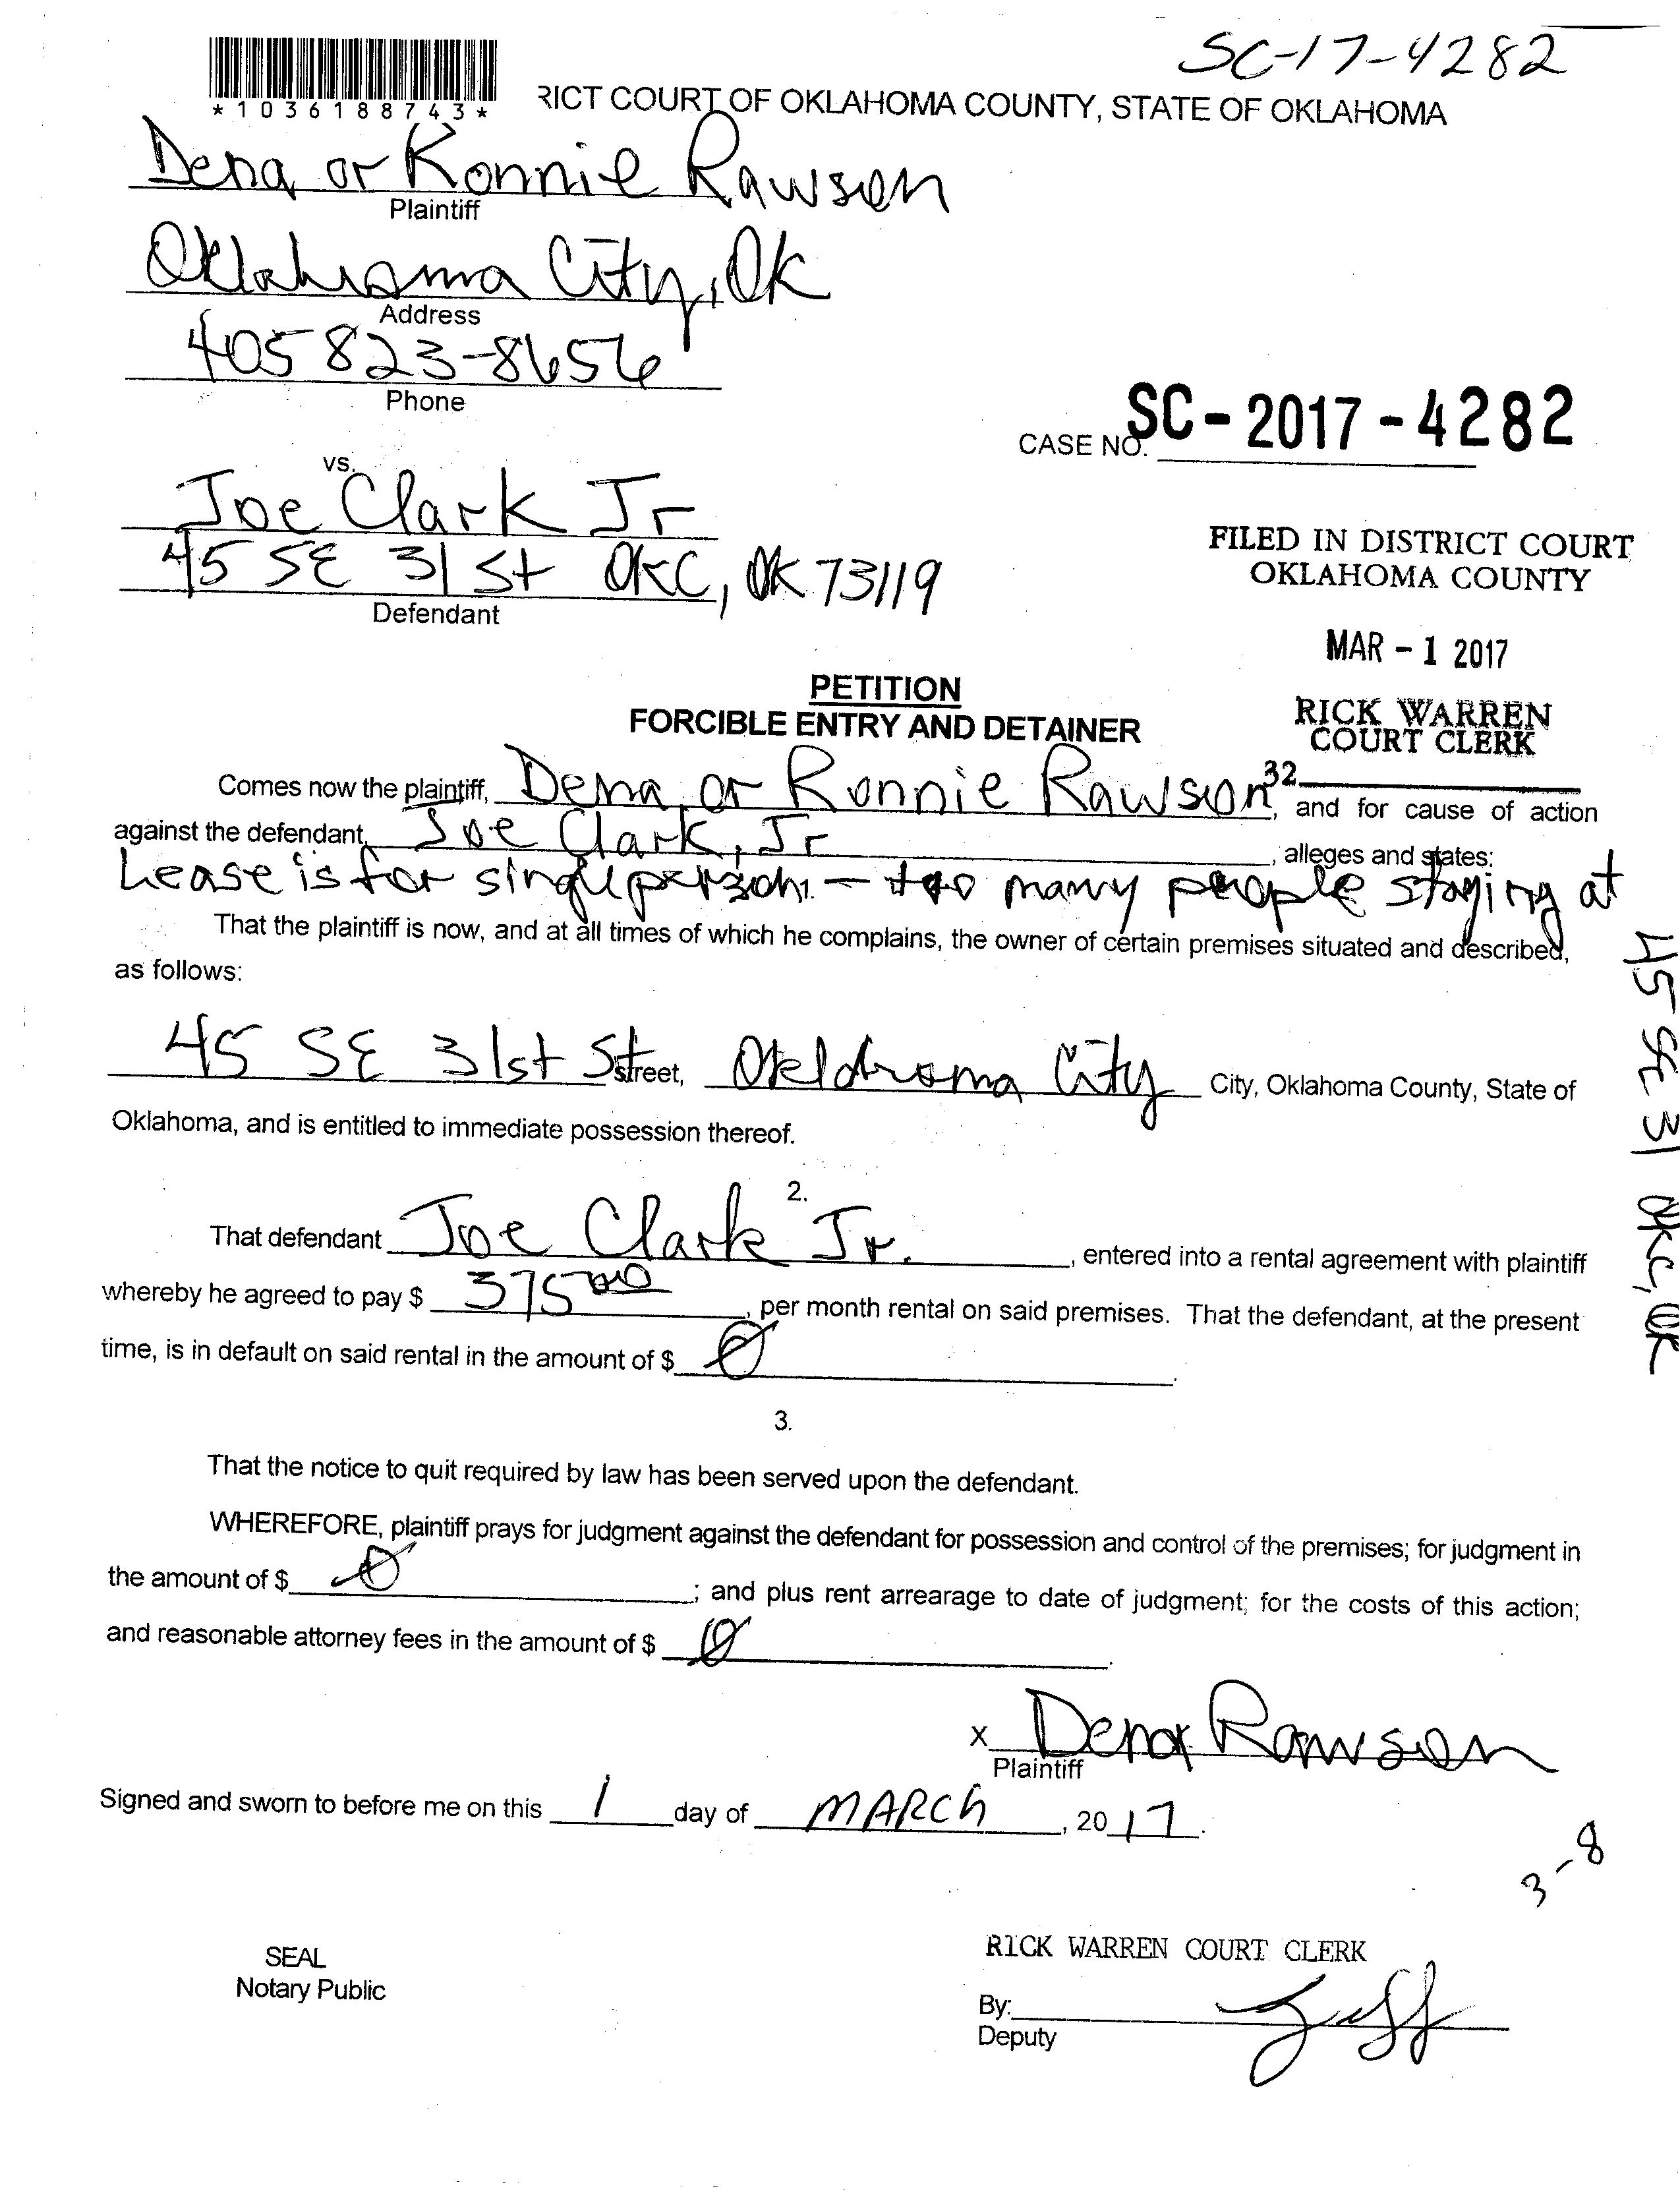 SC-17-4282
*1036188743*
RICT COURT OF OKLAHOMA COUNTY, STATE OF OKLAHOMA
Dena or Ronnie Rawson
Plaintiff
Oklahoma City, OK
Address
405 823-8656
Phone
CASE NO. SC-2017-4282
vs.
Joe Clark Jr
45 SE 31 St OKC, OK 73119
Defendant
FILED IN DISTRICT COURT
OKLAHOMA COUNTY
MAR - 1 2017
RICK WARREN
COURT CLERK
32
PETITION
FORCIBLE ENTRY AND DETAINER
Comes now the plaintiff, Dena or Ronnie Rawson, and for cause of action
against the defendant, Joe Clark, Jr, alleges and states:
Lease is for single person - too many people staying at
45 SE 31 OKC, OK
That the plaintiff is now, and at all times of which he complains, the owner of certain premises situated and described,
as follows:
45 SE 31st St Street, Oklahoma City City, Oklahoma County, State of
Oklahoma, and is entitled to immediate possession thereof.
2.
That defendant Joe Clark Jr., entered into a rental agreement with plaintiff
whereby he agreed to pay $ 375 00, per month rental on said premises. That the defendant, at the present
time, is in default on said rental in the amount of $ 0.
3.
That the notice to quit required by law has been served upon the defendant.
WHEREFORE, plaintiff prays for judgment against the defendant for possession and control of the premises; for judgment in
the amount of $ 0; and plus rent arrearage to date of judgment; for the costs of this action;
and reasonable attorney fees in the amount of $ 0.
X Dena Rawson
Plaintiff
Signed and sworn to before me on this 1 day of MARCH, 2017.
3-8
SEAL
Notary Public
RICK WARREN COURT CLERK
By:
Deputy